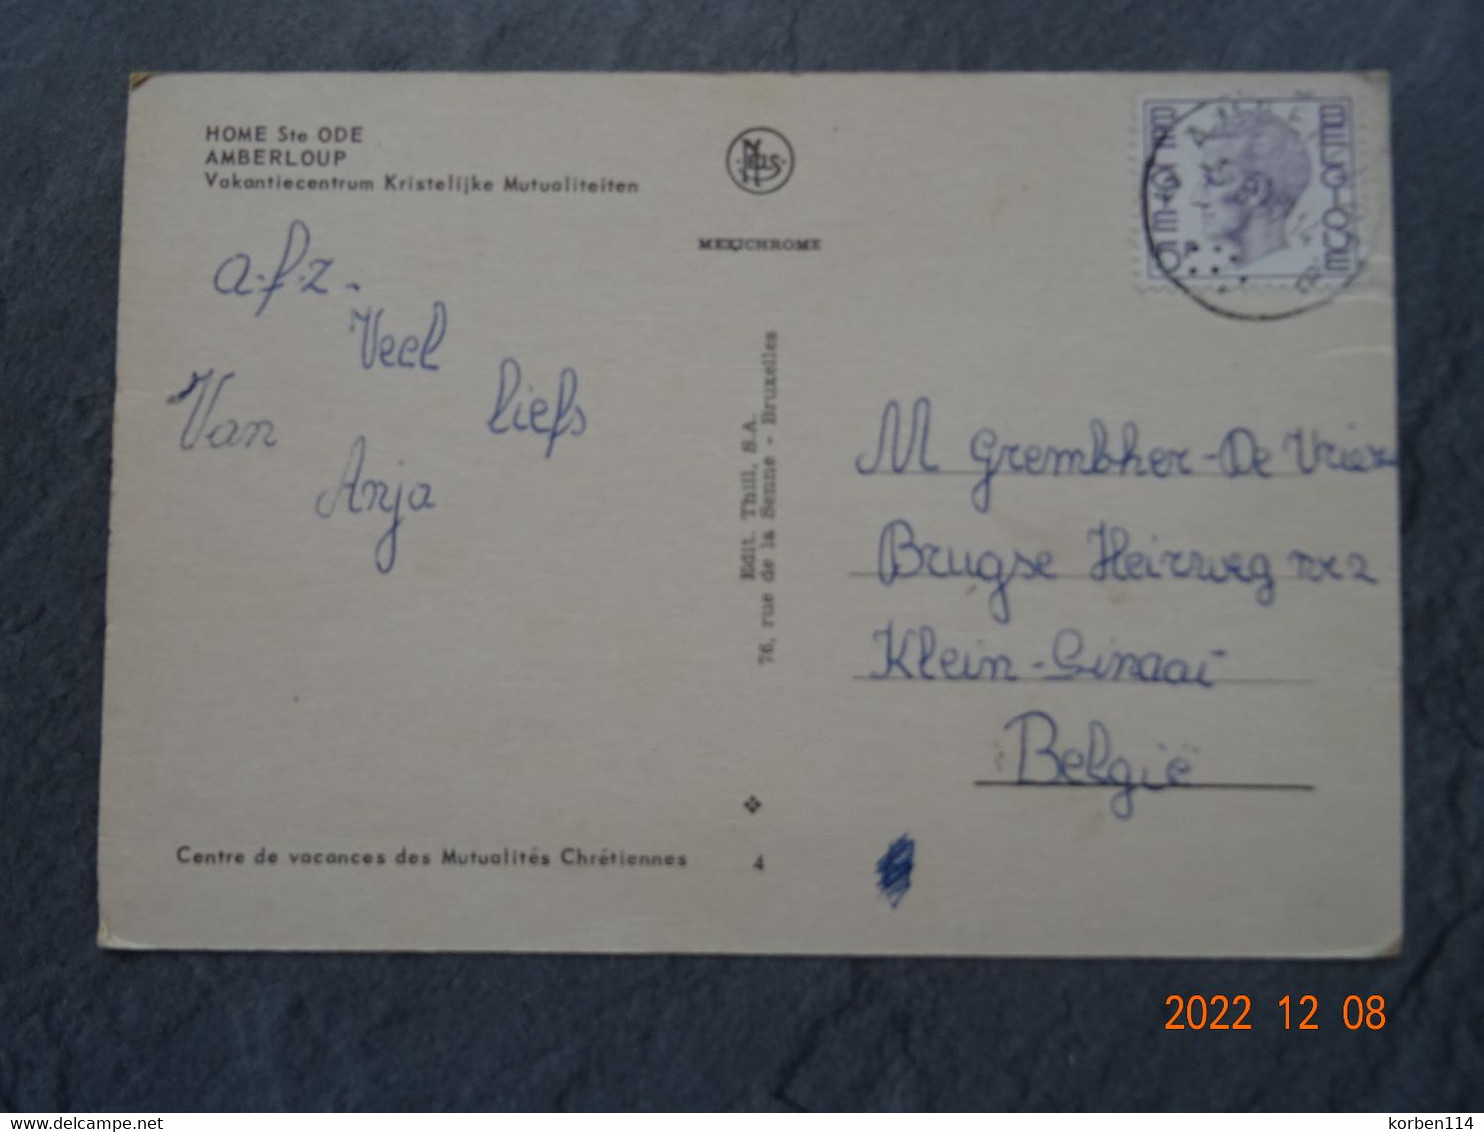 HOME Ste ODE
AMBERLOUP
Vakantiecentrum Kristelijke Mutualiteiten
Nels
MEXICHROME
BELGIE
BELGIQUE
a.f.z.
Veel
liefs
Van
Anja
Edit. Thill, S.A.
76, rue de la Senne - Bruxelles
M Grembher-De Vriez
Brugse Heirweg nr 2
Klein-Sinaai
België
Centre de vacances des Mutualités Chrétiennes
4
2022 12 08
korben114